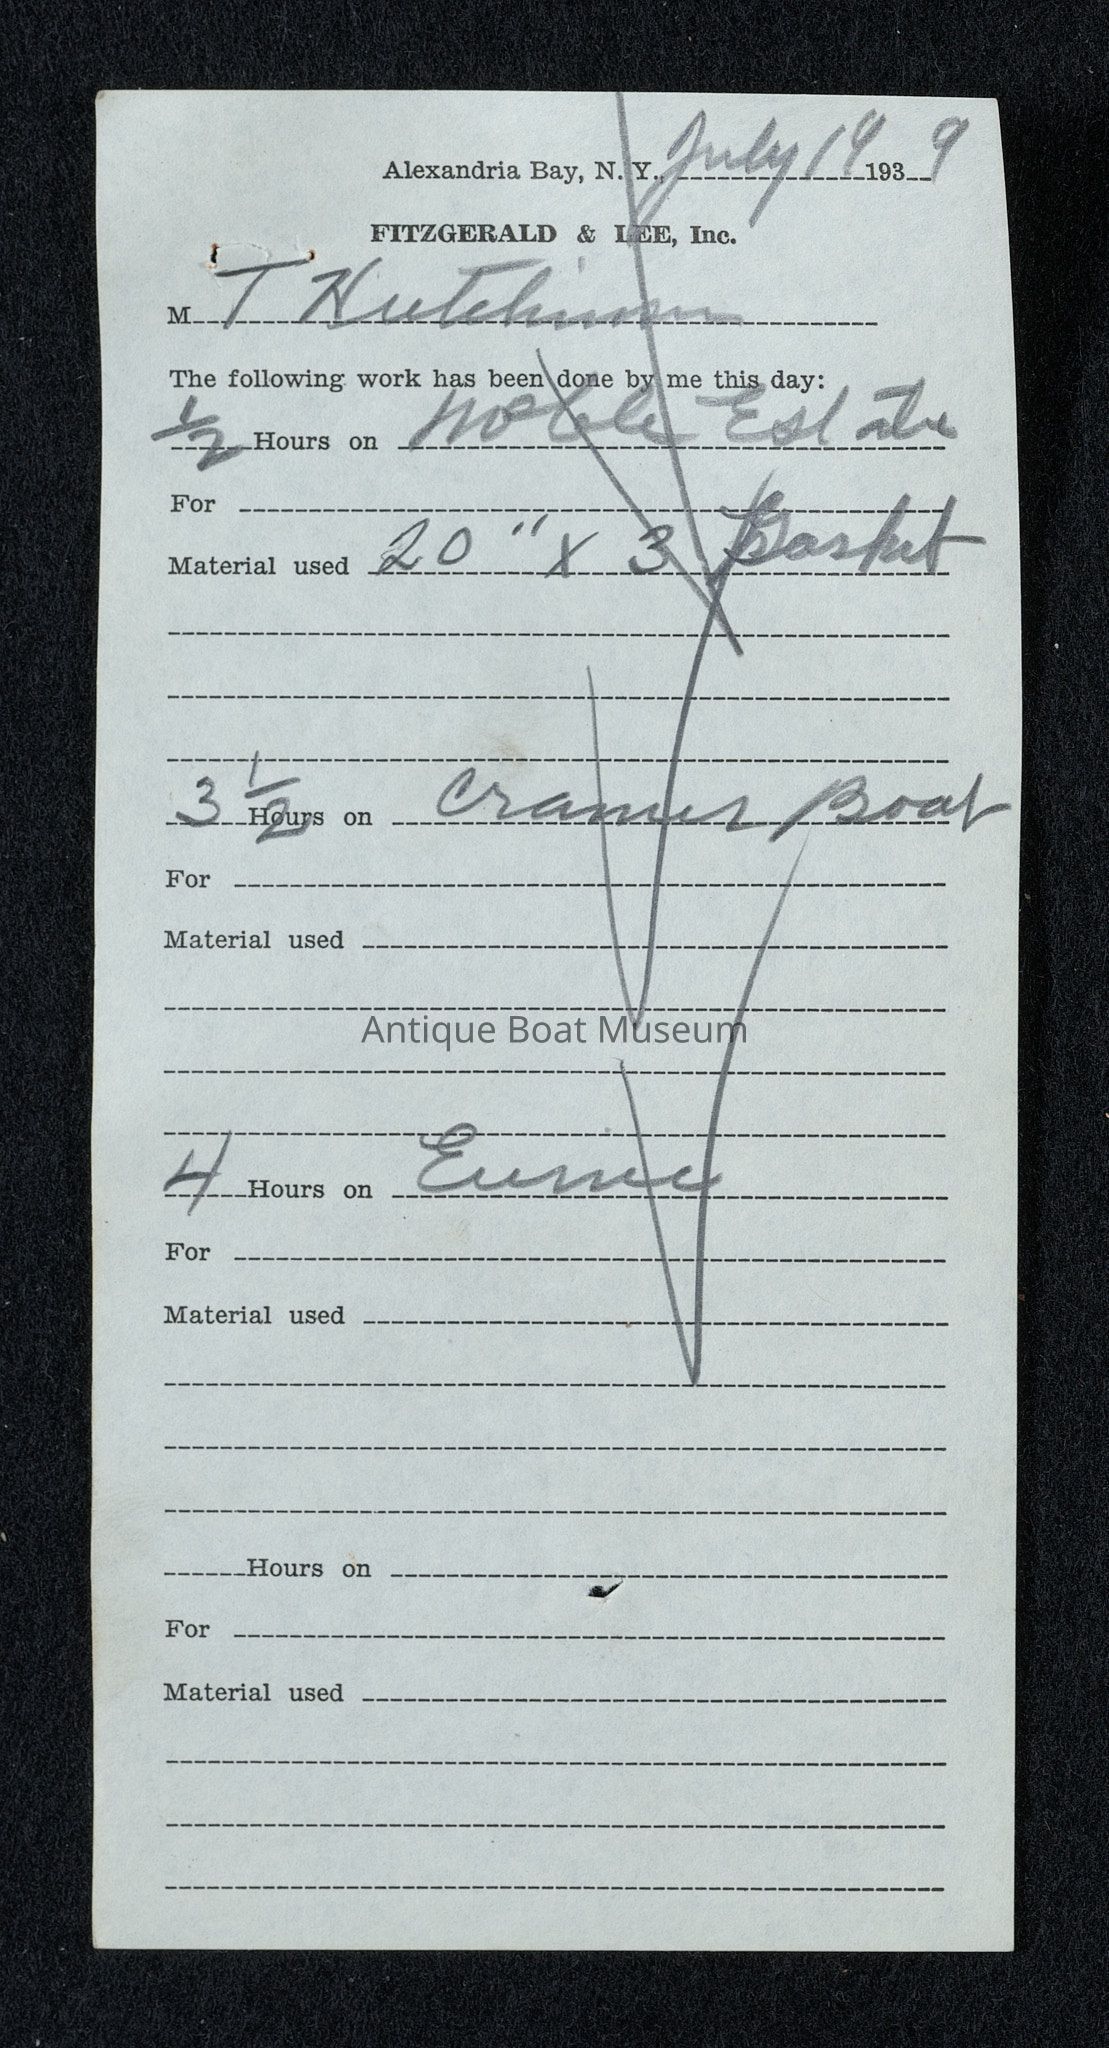 Alexandria Bay, N. Y., July 19 1939
FITZGERALD & LEE, Inc.
M T Hutchinson
The following work has been done by me this day:
1/2 Hours on Noble Estate
For
Material used 20" x 3 Gasket
3 1/2 Hours on Cramer Boat
For
Material used
Antique Boat Museum
4 Hours on
For
Material used
Hours on
For
Material used